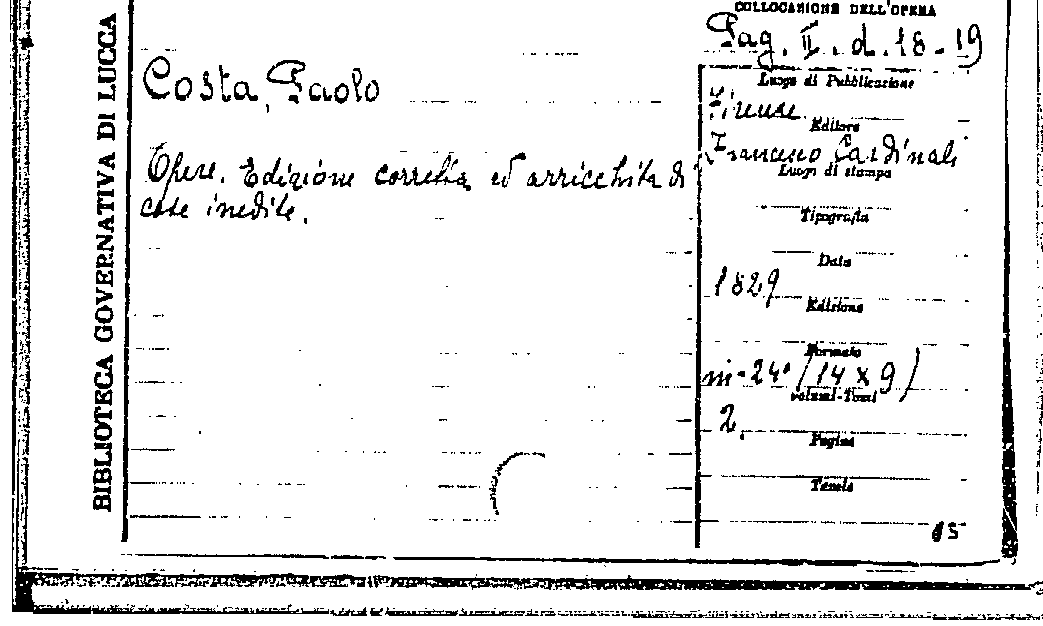 BIBLIOTECA GOVERNATIVA DI LUCCA
COLLOCAZIONE DELL'OPERA
Pag. II. d. 18-19
Costa, Paolo
Opere. Edizione corretta ed arricchita di
cose inedite.
Luogo di Pubblicazione
Firenze
Editore
Francesco Cardinali
Luogo di stampa
Tipografia
Data
1829
Edizione
Formato
in-24° (14 x 9)
Volumi-Tomi
2.
Pagine
Tavole